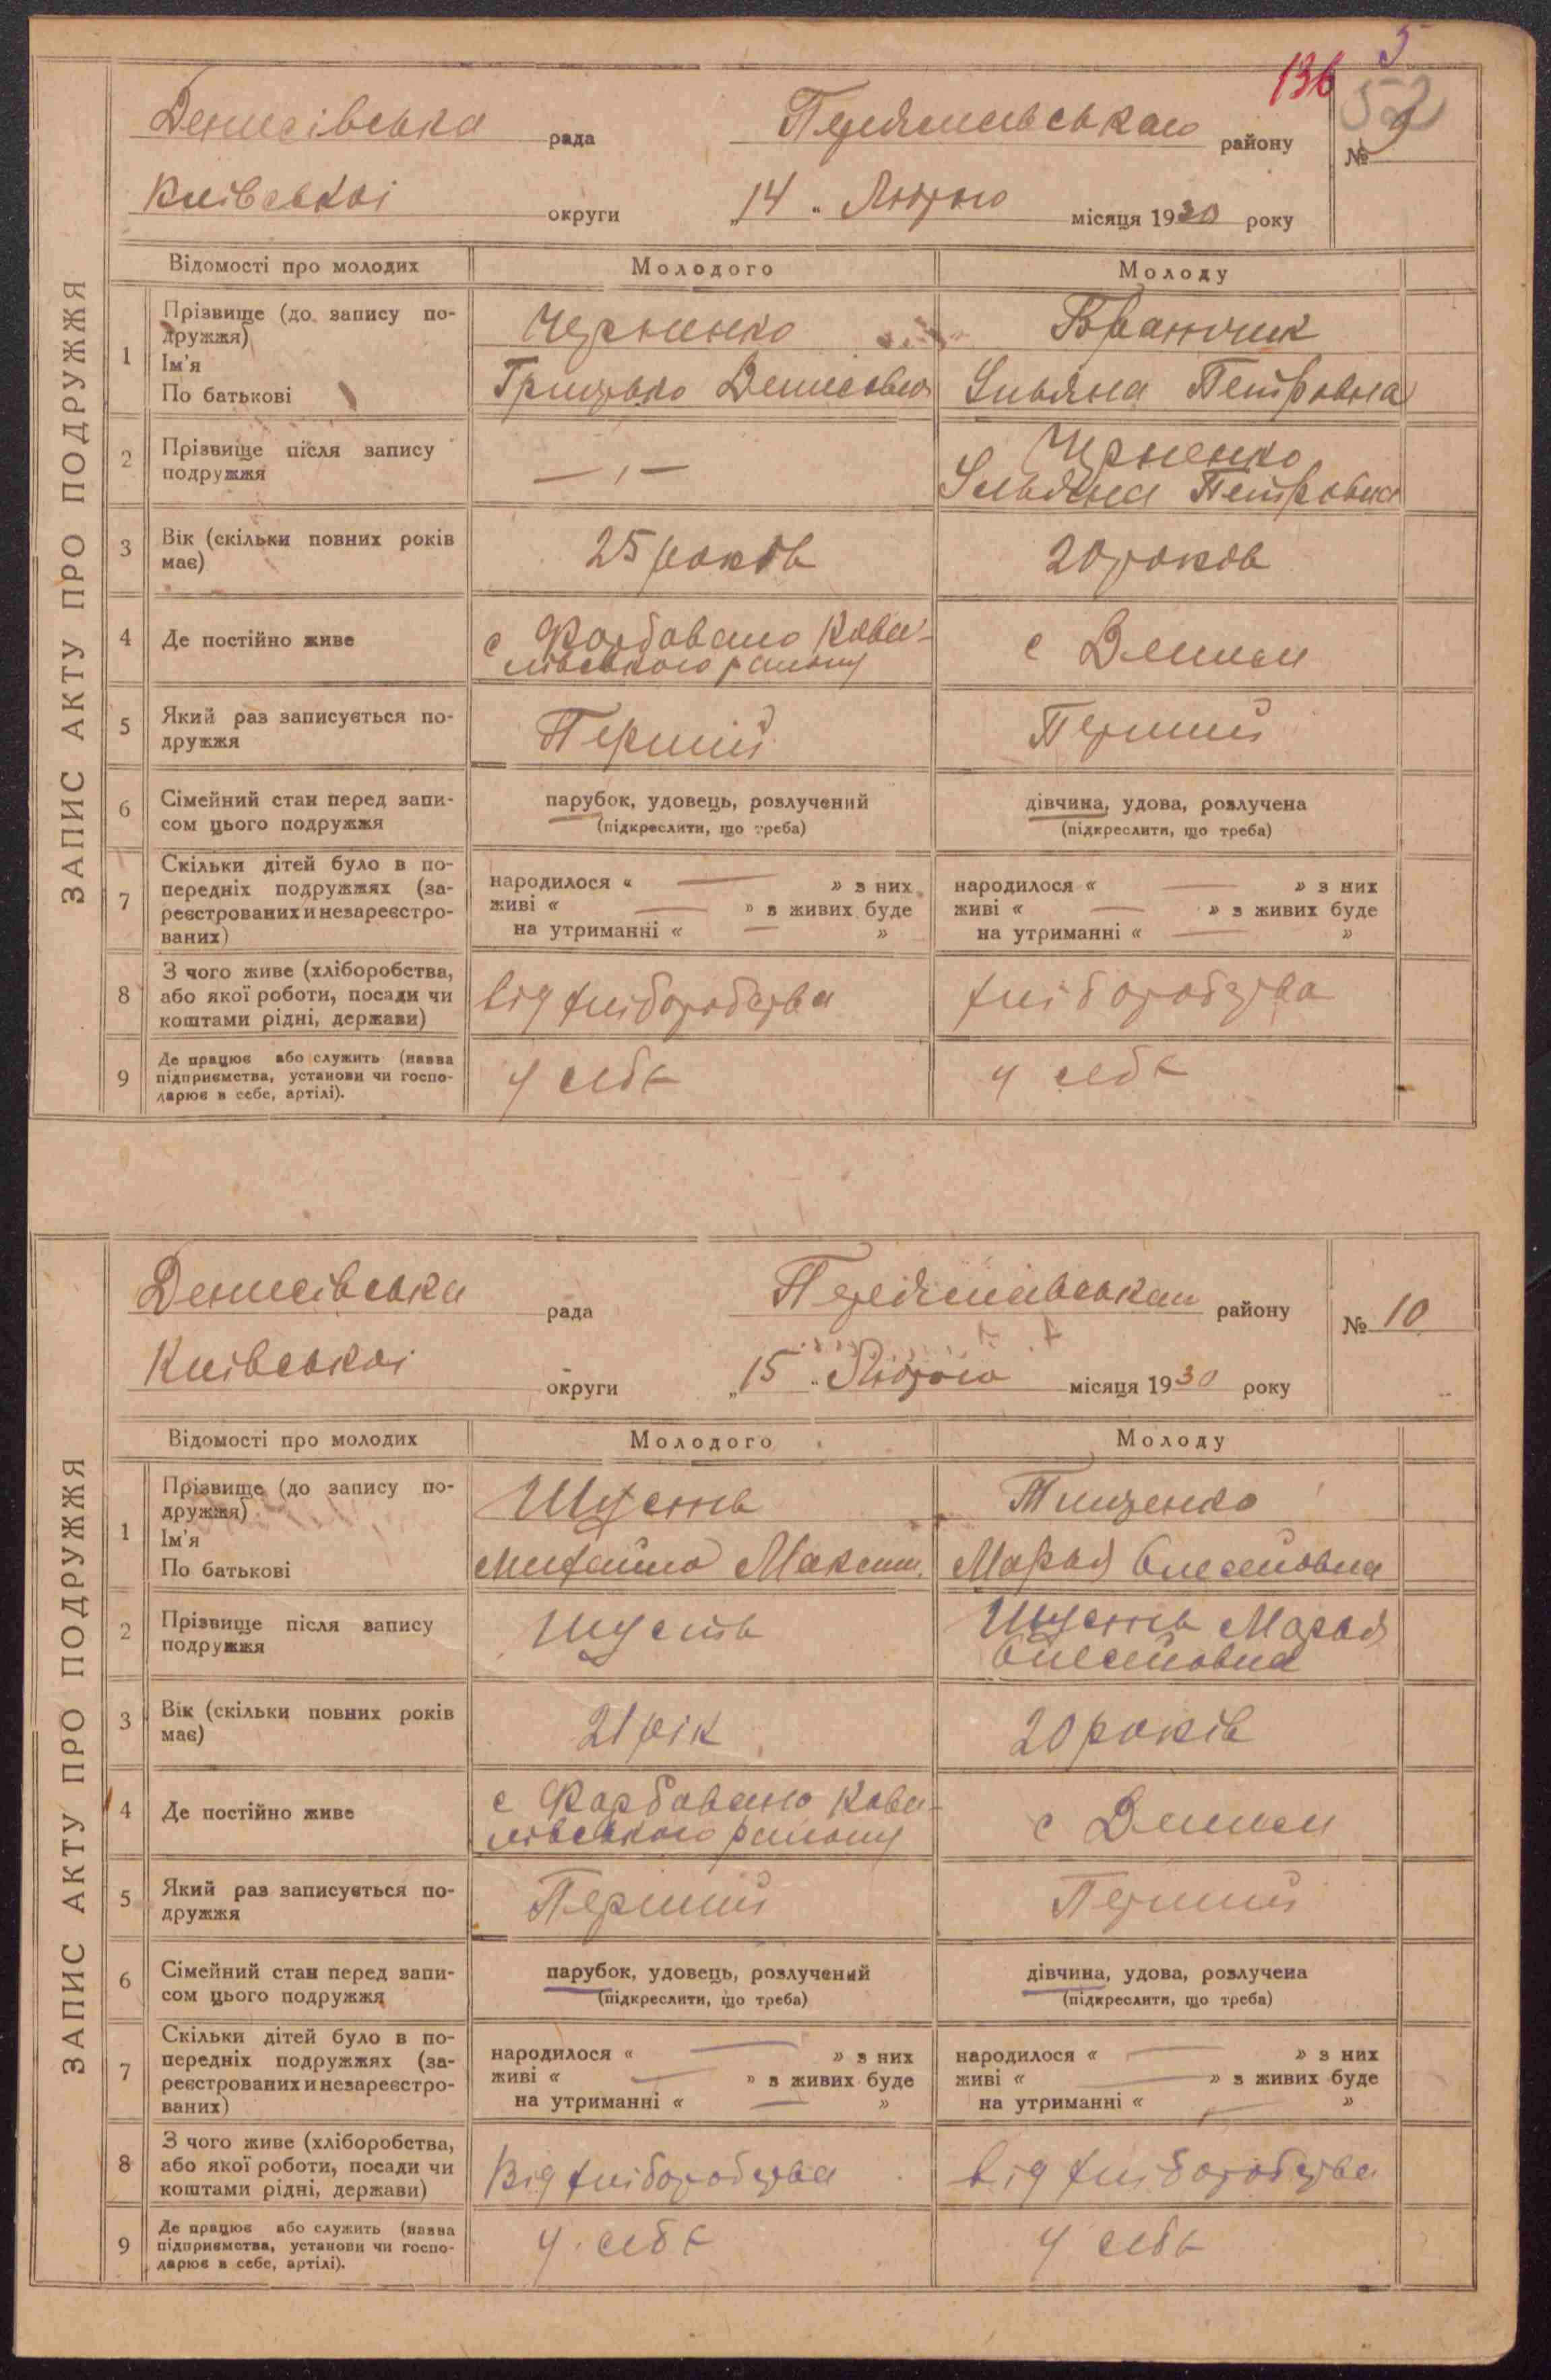 5
136
52
Денисівська рада Переяславського району № 9
Київської округи „14“ Лютого місяця 1930 року
ЗАПИС АКТУ ПРО ПОДРУЖЖЯ
Відомості про молодих Молодого Молоду
1 Прізвище (до запису по-
дружжя) Черненко
Ім'я
По батькові Грицько Денисович Ульяна Петровна
2 Прізвище після запису
подружжя — „ — Черненко
Ульяна Петровна
3 Вік (скільки повних років
має) 25 років 20 років
4 Де постійно живе с Фарбовано Кова-
лівського району с Днина
5 Який раз записується по-
дружжя Перший Перший
6 Сімейний стан перед запи-
сом цього подружжя парубок, удовець, розлучений дівчина, удова, розлучена
(підкреслити, що треба) (підкреслити, що треба)
7 Скільки дітей було в по-
передніх подружжях (за-
реєстрованих и незареєстро-
ваних)
народилося « — » з них народилося « — » з них
живі « — » з живих буде живі « — » з живих буде
на утриманні « — » на утриманні « — »
8 З чого живе (хліборобства,
або якої роботи, посади чи
коштами рідні, держави) від хліборобства хліборобства
9 Де працює або служить (назва
підприємства, установи чи госпо-
дарює в себе, артілі). у себе у себе
Денисівська рада Переяславського району № 10
Київської округи „15“ Лютого місяця 1930 року
ЗАПИС АКТУ ПРО ПОДРУЖЖЯ
Відомості про молодих Молодого Молоду
1 Прізвище (до запису по-
дружжя) Шусть Тищенко
Ім'я
По батькові Михайло Максим. Марья Олексійовна
2 Прізвище після запису
подружжя Шусть Шусть Марья
Олексійовна
3 Вік (скільки повних років
має) 21 рік 20 років
4 Де постійно живе с Фарбовано Кова-
лівського району с
5 Який раз записується по-
дружжя Перший Перший
6 Сімейний стан перед запи-
сом цього подружжя парубок, удовець, розлучений дівчина, удова, розлучена
(підкреслити, що треба) (підкреслити, що треба)
7 Скільки дітей було в по-
передніх подружжях (за-
реєстрованих и незареєстро-
ваних)
народилося « — » з них народилося « — » з них
живі « — » з живих буде живі « — » з живих буде
на утриманні « — » на утриманні « — »
8 З чого живе (хліборобства,
або якої роботи, посади чи
коштами рідні, держави) Від хліборобства від хліборобства
9 Де працює або служить (назва
підприємства, установи чи госпо-
дарює в себе, артілі). у себе у себе